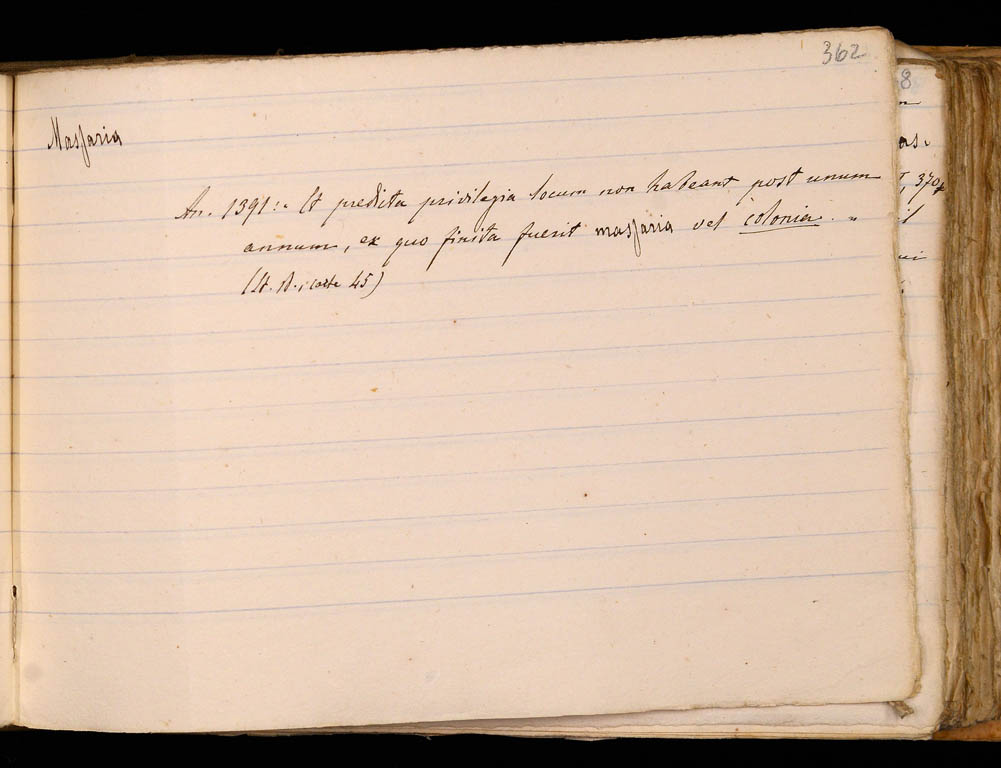 362
Massaria
An. 1391: « Et predicta privilegia locum non habeant post unum
annum, ex quo finita fuerit massaria vel colonia. »
(St. B. carte 45)
8
as.
370